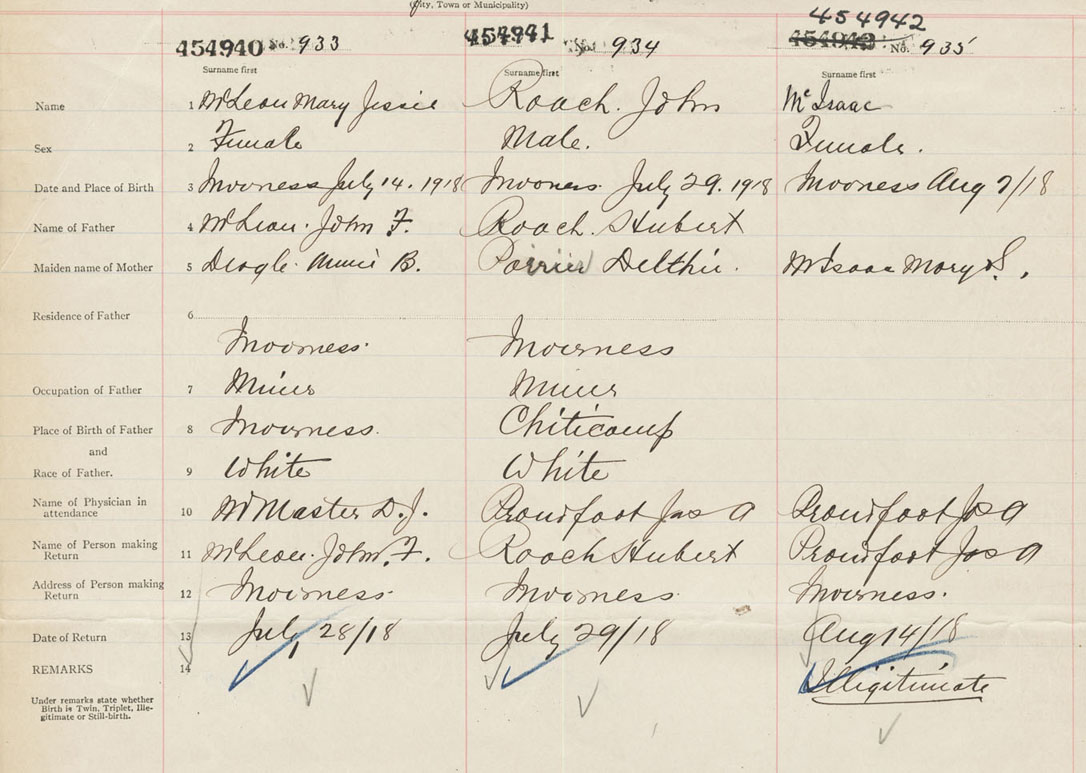 (City, Town or Municipality)
454942
454940 No. 933 454941 No. 934 No. 935
Surname first Surname first Surname first
Name 1 McLean Mary Jessie Roach. John McIsaac
Sex 2 Female Male. Female.
Date and Place of Birth 3 Inverness July 14. 1918 Inverness. July 29. 1918 Inverness Aug 7/18
Name of Father 4 McLean. John F. Roach. Hubert
Maiden name of Mother 5 Deagle. Annie B. Poirrier Delthie. McIsaac Mary S.
Residence of Father 6
Inverness. Inverness
Occupation of Father 7 Miner Miner
Place of Birth of Father 8 Inverness. Chiticamp
and
Race of Father. 9 White White
Name of Physician in
attendance 10 McMaster D. J. Proudfoot Jas A Proudfoot Jas A
Name of Person making
Return 11 McLean. John. F. Roach Hubert Proudfoot Jas A
Address of Person making
Return 12 Inverness. Inverness. Inverness.
Date of Return 13 July, 28/18 July 29/18 Aug 14/18
REMARKS 14 Illigitimate
Under remarks state whether
Birth is Twin, Triplet, Ille-
gitimate or Still-birth.